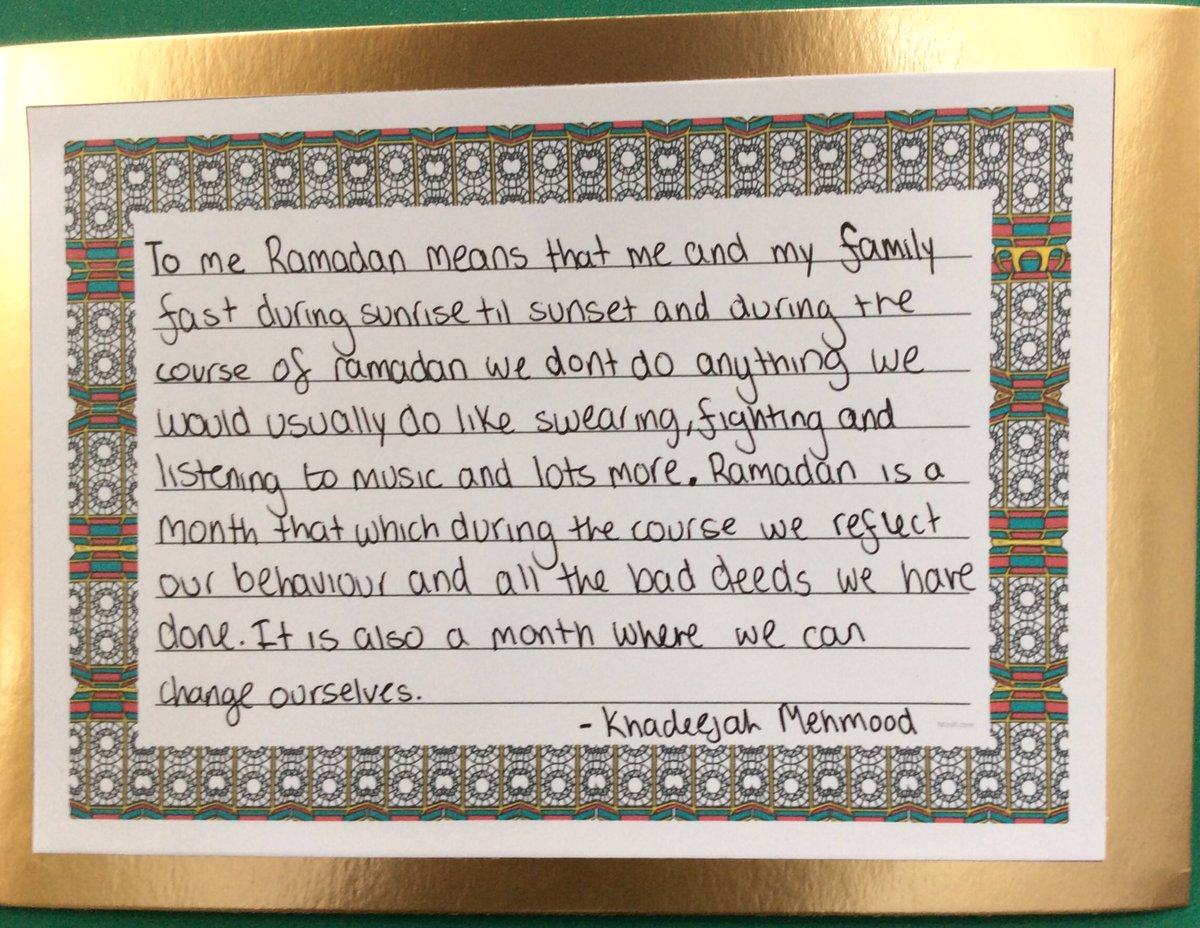 To me Ramadan means that me and my family
fast during sunrise til sunset and during the
course of ramadan we dont do anything we
would usually do like swearing, fighting and
listening to music and lots more. Ramadan is a
month that which during the course we reflect
our behaviour and all the bad deeds we have
done. It is also a month where we can
change ourselves.
- Khadeejah Mehmood